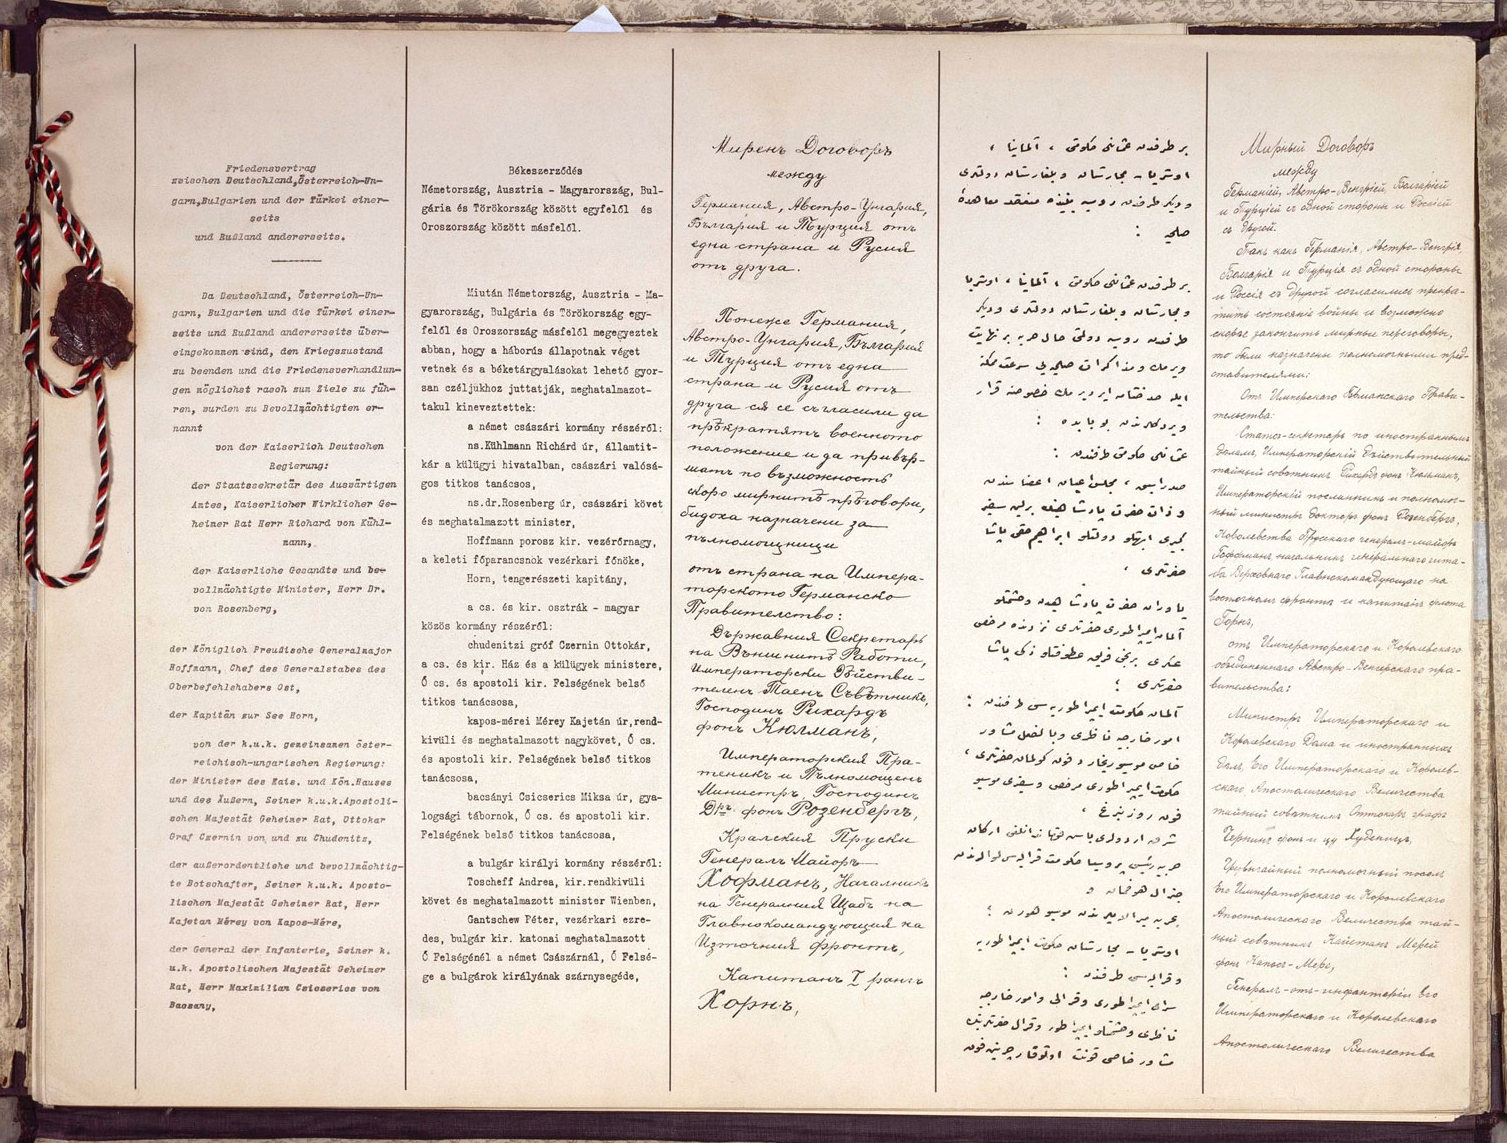 Friedensvertrag
zwischen Deutschland, Österreich-Un-
garn, Bulgarien und der Türkei einer-
seits
und Rußland andererseits.
Da Deutschland, Österreich-Un-
garn, Bulgarien und die Türkei einer-
seits und Rußland andererseits über-
eingekommen sind, den Kriegszustand
zu beenden und die Friedensverhandlun-
gen möglichst rasch zum Ziele zu füh-
ren, wurden zu Bevollmächtigten er-
nannt
von der Kaiserlich Deutschen
Regierung:
der Staatssekretär des Auswärtigen
Amtes, Kaiserlicher Wirklicher Ge-
heimer Rat Herr Richard von Kühl-
mann,
der Kaiserliche Gesandte und be-
vollmächtigte Minister, Herr Dr.
von Rosenberg,
der Königlich Preußische Generalmajor
Hoffmann, Chef des Generalstabes des
Oberbefehlshabers Ost,
der Kapitän zur See Horn,
von der k.u.k. gemeinsamen öster-
reichisch-ungarischen Regierung:
der Minister des Kais. und Kön.Hauses
und des Äußern, Seiner k.u.k.Apostoli-
schen Majestät Geheimer Rat, Ottokar
Graf Czernin von und zu Chudenitz,
der außerordentliche und bevollmächtig-
te Botschafter, Seiner k.u.k. Aposto-
lischen Majestät Geheimer Rat, Herr
Kajetan Mérey von Kapos-Mére,
der General der Infanterie, Seiner k.
u.k. Apostolischen Majestät Geheimer
Rat, Herr Maximilian Csicserics von
Bacsany,
Békeszerződés
Németország, Ausztria - Magyarország, Bul-
gária és Törökország között egyfelől és
Oroszország között másfelől.
Miután Németország, Ausztria - Ma-
gyarország, Bulgária és Törökország egy-
felől és Oroszország másfelől megegyeztek
abban, hogy a háborús állapotnak véget
vetnek és a béketárgyalásokat lehető gyor-
san czéljukhoz juttatják, meghatalmazot-
takul kineveztettek:
a német császári kormány részéről:
ns.Kühlmann Richárd úr, államtit-
kár a külügyi hivatalban, császári valósá-
gos titkos tanácsos,
ns.dr.Rosenberg úr, császári követ
és meghatalmazott minister,
Hoffmann porosz kir. vezérőrnagy,
a keleti főparancsnok vezérkari főnöke,
Horn, tengerészeti kapitány,
a cs. és kir. osztrák - magyar
közös kormány részéről:
chudenitzi gróf Czernin Ottokár,
a cs. és kir. Ház és a külügyek ministere,
Ő cs. és apostoli kir. Felségének belső
titkos tanácsosa,
kapos-mérei Mérey Kajetán úr,rend-
kivüli és meghatalmazott nagykövet, Ő cs.
és apostoli kir. Felségének belső titkos
tanácsosa,
bacsányi Csicserics Miksa úr, gya-
logsági tábornok, Ő cs. és apostoli kir.
Felségének belső titkos tanácsosa,
a bulgár királyi kormány részéről:
Toscheff Andrea, kir.rendkivüli
követ és meghatalmazott minister Wienben,
Gantschew Péter, vezérkari ezre-
des, bulgár kir. katonai meghatalmazott
Ő Felségénél a német Császárnál, Ő Felsé-
ge a bulgárok királyának szárnysegéde,
Миренъ Договоръ
между
Германия, Австро-Унгария,
България и Турция отъ
една страна и Русия
отъ друга.
Понеже Германия,
Австро-Унгария, България
и Турция отъ една
страна и Русия отъ
друга ся се съгласили да
прѣкратятъ военното
положение и да привър-
шатъ по възможность
скоро мирнитѣ прѣговори,
бидоха назначени за
пълномощници
отъ страна на Импера-
торското Германско
Правителство:
Държавния Секретаръ
на Външнитѣ Работи,
Императорски Дѣйстви-
теленъ Таенъ Съвѣтникъ,
Господинъ Рихардъ
фонъ Кюлманъ,
Императорския Пра-
теникъ и Пълномощенъ
Министръ, Господинъ
Дръ фонъ Розенбергъ,
Кралския Пруски
Генералъ Майоръ
Хофманъ, Началникъ
на Генералния Щабъ на
Главнокомандующия на
Източния фронтъ,
Капитанъ I рангъ
Хорнъ,
بر طرفدن عثمانلی حكومتی ، آلمانیا ،
اوستریا - مجارستان و بلغارستان دولتلری
و دیگر طرفدن روسیه بیننده منعقد معاهدهٔ
صلحیه :
بر طرفدن عثمانلی حكومتی ، آلمانیا ، اوستریا
و مجارستان و بلغارستان دولتلری و دیگر
طرفدن روسیه دولتی حال حربه بر نهایت
ویرمك و مذاكرات صلحیه یی سرعت ممكنه
ایله
عثمانلی حكومتی طرفندن :
صدر اسبق ، مجلس اعیان اعضاسندن
و ذات حضرت پادشاهینك برلین سفیر
كبیری ابهتلو دولتلو ابراهیم حقی پاشا
حضرتلری ،
یاوران حضرت پادشاهیدن و حشمتلو
آلمان ایمپراطوری حضرتلری نزدنده مرخص
عسكری برنجی فریق عطوفتلو زكی پاشا
حضرتلری ؛
آلمان حكومت ایمپراطوریه سی طرفندن :
امور خارجیه ناظری
فون روزنبرغ ،
Мирный Договоръ
между
Германіей, Австро-Венгріей, Болгаріей
и Турціей съ одной стороны и Россіей
съ другой.
Такъ какъ Германія, Австро-Венгрія,
Болгарія и Турція съ одной стороны
и Россія съ другой согласились прекра-
тить состояніе войны и возможно
скорѣе закончить мирные переговоры,
то были назначены полномочными пред-
ставителями:
Отъ Императорскаго Германскаго Прави-
тельства:
Статсъ-секретарь по иностраннымъ
дѣламъ, Императорскій дѣйствительный
тайный совѣтникъ Рихардъ фонъ Кюльманъ,
Императорскій посланникъ и полномоч-
ный министръ Докторъ фонъ Розенбергъ,
Королевства Прусскаго генералъ-майоръ
Гофманъ начальникъ генеральнаго шта-
ба Верховнаго Главнокомандующаго на
восточномъ фронтѣ и капитанъ флота
Горнъ,
отъ Императорскаго и Королевскаго
объединеннаго Австро-Венгерскаго пра-
вительства:
Министръ Императорскаго и
Королевскаго Дома и иностранныхъ
дѣлъ, Его Императорскаго и Королев-
скаго Апостолическаго Величества
тайный совѣтникъ Оттокаръ графъ
Чернинъ фонъ и цу Худеницъ,
Чрезвычайный полномочный посолъ
Его Императорскаго и Королевскаго
Апостолическаго Величества тай-
ный совѣтникъ Кайетанъ Мерей
фонъ Капосъ-Мере,
Генералъ-отъ-инфантеріи Его
Императорскаго и Королевскаго
Апостолическаго Величества